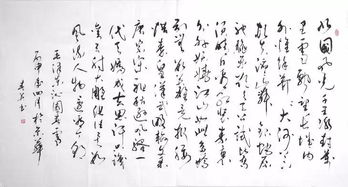 北国风光千里冰封万
里雪飘望长城内
外惟馀莽莽大河上
下顿失滔滔山舞银蛇原
驰蜡象欲与天公试比高
须晴日看红装素裹
分外妖娆江山如此多娇
引无数英雄竞折腰
惜秦皇汉武略输文采
唐宗宋祖稍逊风骚一
代天骄成吉思汗只识
弯弓射大雕俱往矣数
风流人物还看今朝
毛泽东沁园春雪
丙申年四月於京华
书